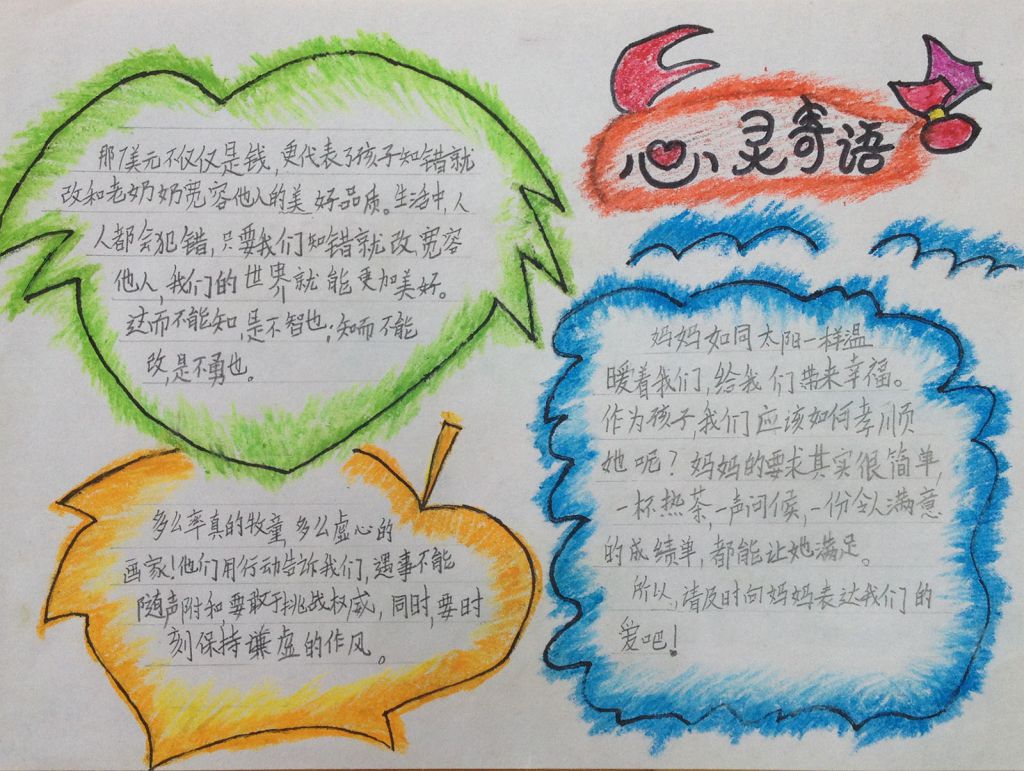 心灵寄语
那7美元不仅仅是钱,更代表了孩子知错就
改和老奶奶宽容他人的美好品质。生活中,人
人都会犯错,只要我们知错就改,宽容
他人,我们的世界就能更加美好。
过而不能知,是不智也;知而不能
改,是不勇也。
多么率真的牧童,多么虚心的
画家!他们用行动告诉我们,遇事不能
随声附和要敢于挑战权威,同时,要时
刻保持谦虚的作风。
妈妈如同太阳一样温
暖着我们,给我们带来幸福。
作为孩子,我们应该如何孝顺
她呢?妈妈的要求其实很简单,
一杯热茶,一声问候,一份令人满意
的成绩单,都能让她满足。
所以,请及时向妈妈表达我们的
爱吧!